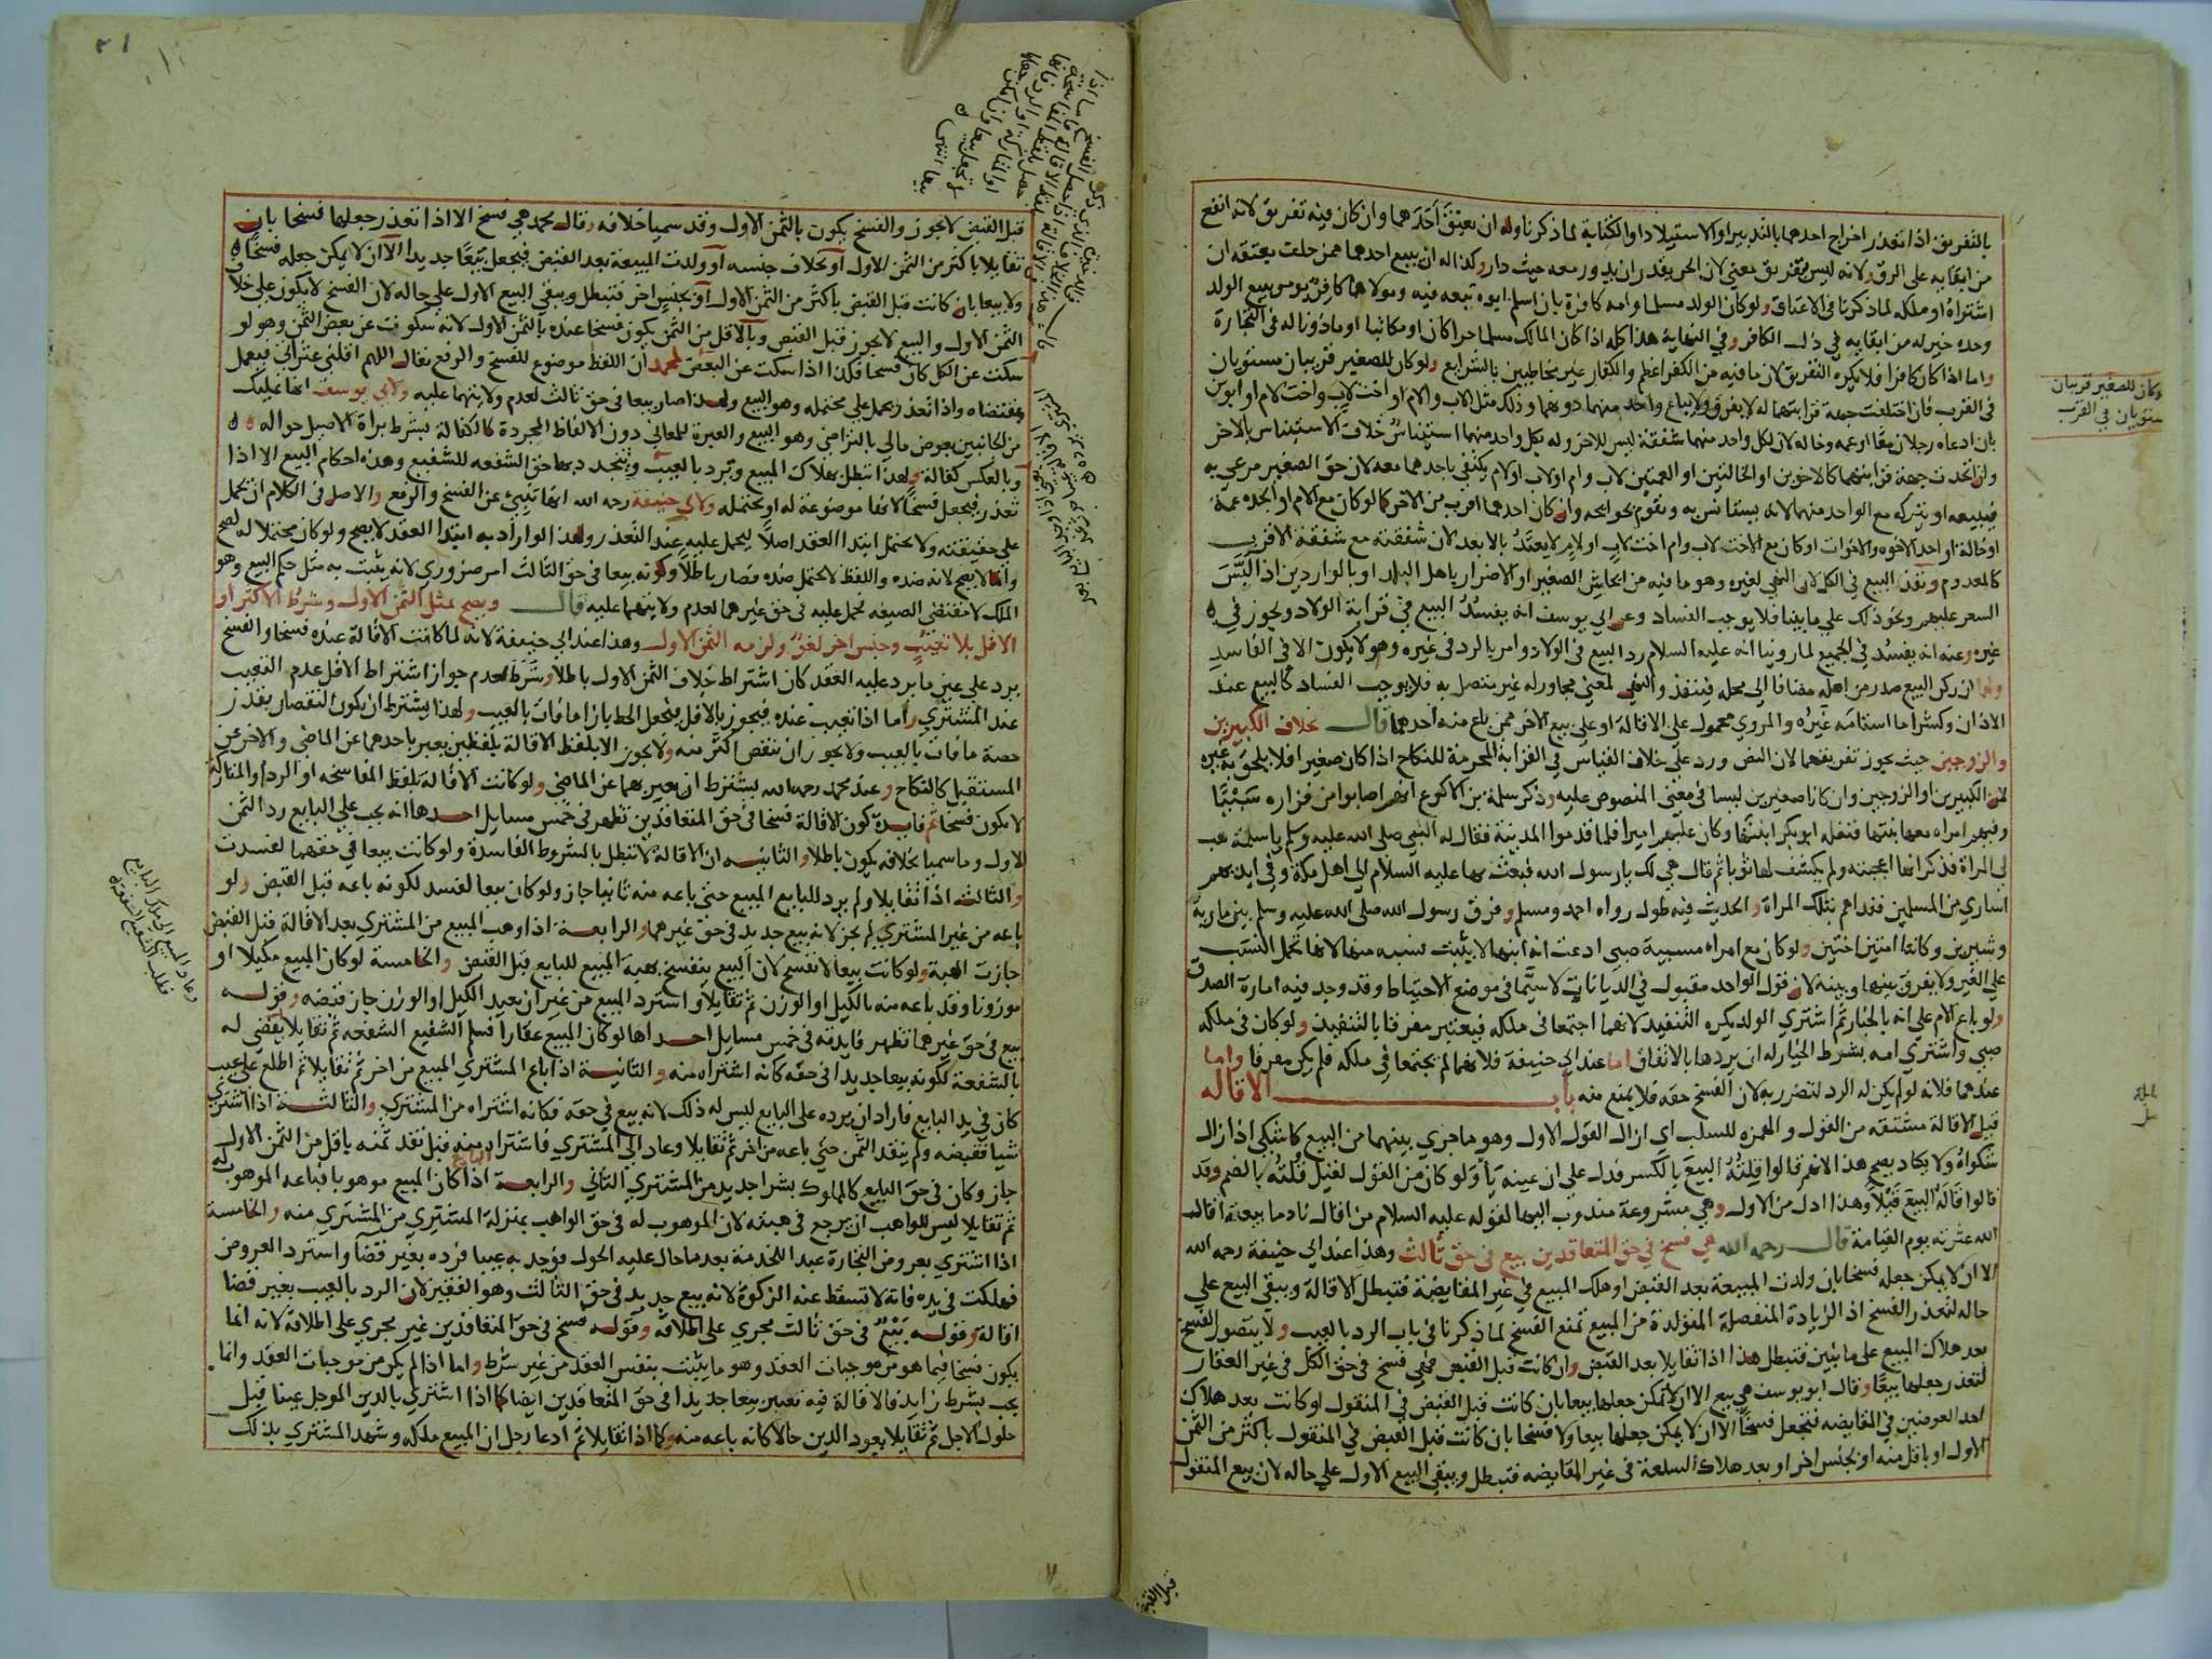 بالتفريق اذا تعذر اخراج احدهما بالتدبير او الاستيلاد او الكتابة لما ذكرنا وله ان يعتق احدهما وان كان فيه تفريق لانه انفع
من ابقايه على الرق ولانه ليس بتفريق معني لان الحر يقدر ان يدور معه حيث دار وكذا له ان يبيع احدهما ممن حلف بعتقه ان
اشتراه او ملكه لما ذكرنا في الاعتاق ولو كان الولد مسلما وامه كافرة بان اسلم ابوه تبعه فيه ومولاهما كافر يومر ببيع الولد
وحده خير له من ابقايه في ذل الكافر وفي النهاية هذا كله اذا كان المالك مسلما حرا كان او مكاتبا او ماذونا له في التجارة
واما اذا كان كافرا فلا يكره التفريق لان ما فيه من الكفر اعظم والكفار غير مخاطبين بالشرايع ولو كان للصغير قريبان مستويان
في القرب فان اختلفت جهة قرابتهما له لا يفرق ولا يباع واحد منهما دونهما وذلك مثل الاب والام او اخت لاب واخت لام او ابوين
بان ادعاه رجلان معا او عمه وخاله لان لكل واحد منهما شفقة ليس للاخر وله بكل واحد منهما استيناس خلاف الاستيناس بالاخر
وان اتحدت جهة قرابتهما كالاخوين او الخالتين او العمتين لاب وام او لاب او لام يكتفي باحدهما معه لان حق الصغير مرعي به
فيبيعه او يتركه مع الواحد منهما لانه يستانس به وتقوم بحوايجه وان كان احدهما اقرب من الاخر كما لو كان مع الام او الجده عمة
او خالة او احد الاخوه والاخوات او كان مع الاخت لاب وام اخت لاب او لام لا يعتد بالابعد لان شفقته مع شفقة الاقرب
كالمعدوم ونفذ البيع في الكل لان النهي لغيره وهو ما فيه من ايحاش الصغير او الاضرار باهل البلد او بالواردين اذا لبس
السعر عليهم ونحو ذلك على ما بينا فلا يوجب الفساد وعن ابي يوسف انه يفسد البيع في قرابة الولاد ويجوز في
غيره وعنه انه يفسد في الجميع لما روينا انه عليه السلام رد البيع في الولاد وامر بالرد في غيره وهو لا يكون الا في الفاسد
ولنا ان ركن البيع صدر من اهله مضافا الي محله فينفذ والنهي لمعني مجاور له غير متصل به فلا يوجب الفساد كالبيع عند
الاذان وكشرا ما استامه غيره والمروي محمول على الاقالة او على بيع الاخر ممن باع منه احدهما قال بخلاف الكبيرين
والزوجين حيث يجوز تفريقهما لان النص ورد على خلاف القياس في القرابة المحرمة للنكاح اذا كان صغيرا فلا يلحق به غيره
لان الكبيرين او الزوجين وان كانا صغيرين ليسا في معني المنصوص عليه وذكر سلمة بن الاكوع انهم اصابوا من فزاره سبيا
وفيهم امراه معها بنتها فنفله ابو بكر ابنتها وكان عليهم اميرا فلما قدموا المدينة فقال له النبي صلى الله عليه وسلم يا سلمة هب
لي المراة فذكر انها اعجبته ولم يكشف لها ثوبا ثم قال هي لك يا رسول الله فبعث بها عليه السلام الي اهل مكة وفي ايديهم
اساري من المسلمين ففداهم بتلك المراة والحديث فيه طول رواه احمد ومسلم وفرق رسول الله صلى الله عليه وسلم بين مارية
وشيرين وكانتا امتين اختين ولو كان مع امراه مسبية صبي ادعت انه ابنها لا يثبت نسبه منها لانها تحمل النسب
على الغير ولا يفرق بينها وبينه لان قول الواحد مقبول في الديانات لا سيما في موضع الاحتياط وقد وجد فيه امارة الصدق
ولو باع الام على انه بالخيار ثم اشترى الولد يكره التنفيذ لانهما اجتمعا في ملكه فيعتبر مفرقا بالتنفيذ ولو كان في ملكه
صبي واشترى امه بشرط الخيار له ان يردها بالاتفاق اما عند ابي حنيفة فلانهما لم يجتمعا في ملكه فلم يكن مفرقا واما
عندهما فلانه لو لم يكن له الرد لتضرر به لان الفسخ حقه فلا يمنع منه باب الاقاله
قيل الاقالة مشتقه من القول والهمزه للسلب اي ازال القول الاول وهو ما جرى بينهما من البيع كاشكي اذا ازال
شكواه ولا يكاد يصح هذا لانهم قالوا قلته البيع بالكسر فدل على ان عينه يا ولو كان من القول لقيل قلته بالضم وقد
قالوا قاله البيع قيلا وهذا ادل من الاول وهي مشروعة مندوب اليها لقوله عليه السلام من اقال نادما بيعته اقال
الله عثرته يوم القيامة قال رحمه الله هي فسخ في حق المتعاقدين بيع في حق ثالث وهذا عند ابي حنيفة رحمه الله
الا ان لا يمكن جعله فسخا بان ولدت المبيعة بعد القبض او هلك المبيع في غير المقايضة فتبطل الاقالة ويبقى البيع على
حاله لتعذر الفسخ اذ الزيادة المنفصلة المتولدة من المبيع تمنع الفسخ لما ذكرنا في باب الرد بالعيب ولا يتصور الفسخ
بعد هلاك المبيع على ما تبين فتبطل هذا اذا تقايلا بعد القبض وان كانت قبل القبض فهي فسخ في حق الكل في غير العقار
لتعذر جعلها بيعا وقال ابو يوسف هي بيع الا ان لا يمكن جعلها بيعا بان كانت قبل القبض في المنقول او كانت بعد هلاك
احد العوضين في المقايضه فتجعل فسخا الا ان لا يمكن جعلها بيعا ولا فسخا بان كانت قبل القبض في المنقول باكثر من الثمن
الاول او باقل منه او بجنس اخر او بعد هلاك السلعة في غير المقايضه فتبطل ويبقى البيع الاول على حاله لان بيع المنقول
وكان للصغير قريبان
مستويان في القرب
قبل القبض
قبل القبض لا يجوز والفسخ يكون بالثمن الاول وقد سميا خلافه وقال محمد هي فسخ الا اذا تعذر جعلها فسخا بان
تقايلا باكثر من الثمن الاول او بخلاف جنسه او ولدت المبيعة بعد القبض فيجعل بيعا جديدا الا ان لا يمكن جعله فسخا
ولا بيعا بان كانت قبل القبض باكثر من الثمن الاول او بجنس اخر فتبطل ويبقى البيع الاول على حاله لان الفسخ لا يكون على خلاف
الثمن الاول والبيع لا يجوز قبل القبض وبالاقل من الثمن يكون فسخا عنده بالثمن الاول لانه سكوت عن بعض الثمن وهو لو
سكت عن الكل كان فسخا فكذا اذا سكت عن البعض لمحمد ان اللفظ موضوع للفسخ والرفع يقال اللهم اقلني عثراتي فيعمل
بمقتضاه واذا تعذر يحمل على محتمله وهو البيع ولهذا صار بيعا في حق ثالث لعدم ولايتهما عليه ولابي يوسف انها تمليك
من الجانبين بعوض مالي بالتراضي وهو البيع والعبرة للمعاني دون الالفاظ المجردة كالكفالة بشرط براة الاصيل حواله
وبالعكس كفالة ولهذا تبطل بهلاك المبيع وترد بالعيب ويتجدد بها حق الشفعه للشفيع وهذه احكام البيع الا اذا
تعذر فيجعل فسخا لانها موضوعة له او يحتمله ولابي حنيفة رحمه الله انها تنبئ عن الفسخ والرفع والاصل في الكلام ان يحمل
على حقيقته ولا يحتمل ابتدا العقد اصلا ليحمل عليه عند التعذر ولهذا لو اراد به ابتدا العقد لا يصح ولو كان محتملا له لصح
وانما لا يصح لانه ضده واللفظ لا يحتمل ضده فصار باطلا وكونه بيعا في حق الثالث امر ضروري لانه يثبت به مثل حكم البيع وهو
الملك لا مقتضى الصيغه فحمل عليه في حق غيرهما لعدم ولايتهما عليه قال ويصح بمثل الثمن الاول وشرط الاكثر او
الاقل بلا تعيب وجنس اخر لغو ولزمه الثمن الاول وهذا عند ابي حنيفة لانه لما كانت الاقالة عنده فسخا والفسخ
يرد على عين ما يرد عليه العقد كان اشتراط خلاف الثمن الاول باطلا وشرط لعدم جواز اشتراط الاقل عدم التعيب
عند المشتري واما اذا تعيب عنده فيجوز بالاقل فيجعل الحط بازا ما فات بالعيب ولهذا يشترط ان يكون النقصان بقدر
حصة ما فات بالعيب ولا يجوز ان ينقص اكثر منه ولا يجوز الا بلفظ الاقالة بلفظين يعبر باحدهما عن الماضي والاخر عن
المستقبل كالنكاح وعند محمد رحمه الله يشترط ان يعبر بهما عن الماضي ولو كانت الاقالة بلفظ المفاسخه او الرد او المتاركة
لا يكون فسخا ثم فايدة كون الاقالة فسخا في حق المتعاقدين تظهر في خمس مسايل احدها انه يجب على البايع رد الثمن
الاول وما سميا بخلافه يكون باطلا والثانيه ان الاقالة لا تبطل بالشروط الفاسدة ولو كانت بيعا في حقهما لفسدت
والثالث اذا تقايلا ولم يرد للبايع المبيع حتي باعه منه ثانيا جاز ولو كان بيعا لفسد لكونه باعه قبل القبض ولو
باعه من غير المشتري لم يجز لانه بيع جديد في حق غيرهما والرابعة اذا وهب المبيع من المشتري بعد الاقالة قبل القبض
جازت الهبة ولو كانت بيعا لانفسخ لان البيع ينفسخ بهبة المبيع للبايع قبل القبض والخامسة لو كان المبيع مكيلا او
موزونا وقد باعه منه بالكيل او الوزن ثم تقايلا واسترد المبيع من غير ان يعيد الكيل او الوزن جاز قبضه وقوله
بيع في حق غيرهما تظهر فايدته في خمس مسايل احداها لو كان المبيع عقارا فسلم الشفيع الشفعه ثم تقايلا يقضى له
بالشفعة لكونه بيعا جديدا في حقه كانه اشتراه منه والثانيه اذا باع المشتري المبيع من اخر ثم تقايلا ثم اطلع على عيب
كان في يد البايع فاراد ان يرده على البايع ليس له ذلك لانه بيع في حقه فكانه اشتراه من المشتري والثالثة اذا اشترى
شيا فقبضه ولم ينقد الثمن حتي باعه من اخر ثم تقايلا وعاد الي المشتري فاشتراه منه قبل نقد ثمنه باقل من الثمن الاول
جاز وكان في حق البايع كالمملوك بشرا جديد من المشتري الثاني والرابعة اذا كان المبيع موهوبا فباعه الموهوب له
ثم تقايلا ليس للواهب ان يرجع في هبته لان الموهوب له في حق الواهب بمنزلة المشتري من المشتري منه والخامسة
اذا اشترى بعروض التجارة عبدا للخدمة بعد ما حال عليه الحول فوجد به عيبا فرده بغير قضا واسترد العروض
فهلكت في يده فانه لا تسقط عنه الزكوة لانه بيع جديد في حق الثالث وهو الفقير لان الرد بالعيب بغير قضا
اقالة وقوله بيع في حق ثالث مجرى على اطلاقه وقوله فسخ في حق المتعاقدين غير مجرى على اطلاقه لانه انما
يكون فسخا فيما هو من موجبات العقد وهو ما يثبت بنفس العقد من غير شرط واما اذا لم يكن من موجبات العقد وانما
يجب بشرط زايد فالاقالة فيه تعتبر بيعا جديدا في حق المتعاقدين ايضا كما اذا اشترى بالدين الموجل عينا قبل
حلول الاجل ثم تقايلا يعود الدين حالا كانه باعه منه وكما اذا تقايلا ثم ادعا رجل ان المبيع ملكه وشهد المشتري بذلك